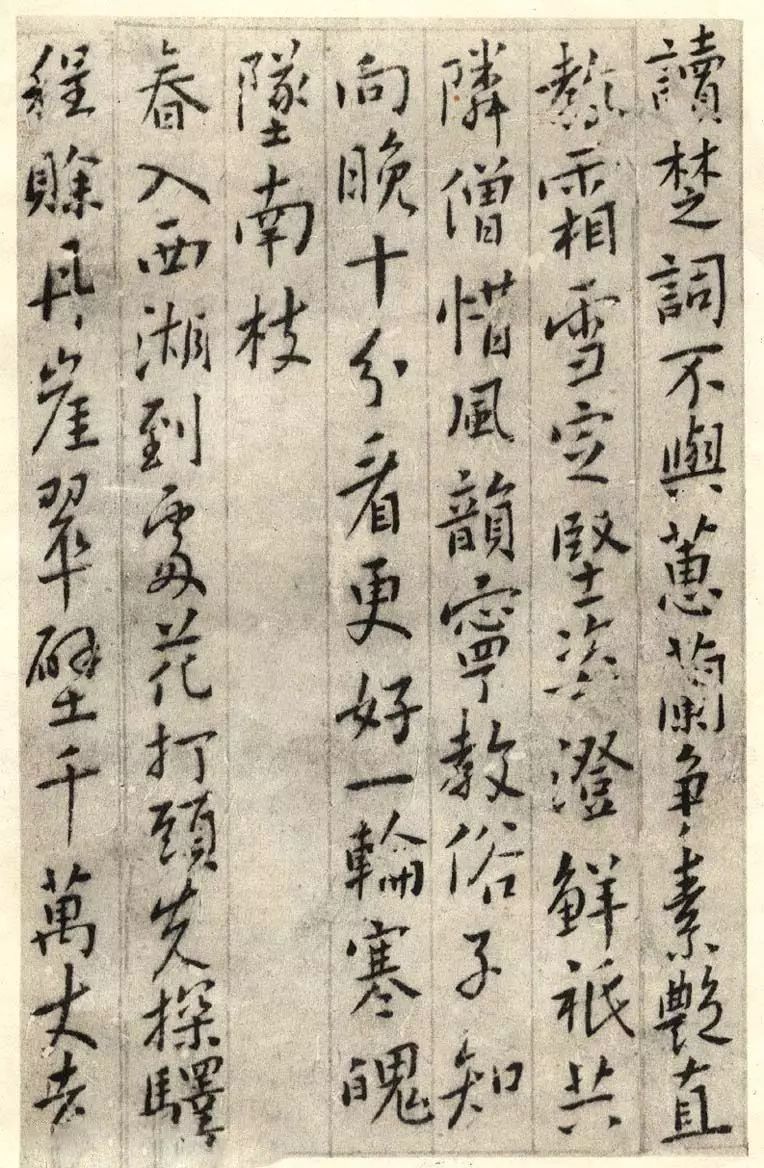 讀楚詞不與蕙蘭爭素艷直
霜雪定堅姿澄鮮祇共
隣僧惜風韻寧教俗子知
向晚十分看更好一輪寒魄
墜南枝
春入西湖到處花打頭先探驛
程賖丹崖翠壁千萬丈